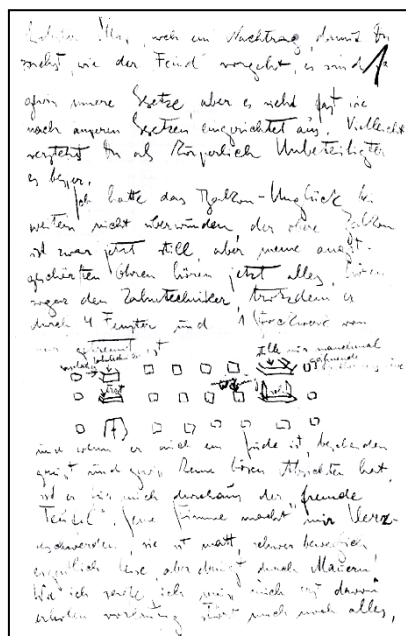 Liebster Max, noch ein Nachtrag, damit Du
siehst, wie der "Feind" vorgeht, es sind ja
gewiss innere Gesetze, aber es sieht fast wie
nach äusseren Gesetzen eingerichtet aus. Vielleicht
verstehst Du als körperlich Unbeteiligter
es besser.
Ich hatte das Balkon-Unglück bei
weitem nicht überwunden, der obere Balkon
ist zwar jetzt still, aber meine angst-
geschärften Ohren hören jetzt alles, hören
sogar den Zahntechniker, trotzdem er
durch 4 Fenster und 1 Stockwerk von
mir getrennt ist
und wenn er auch ein Jude ist, bescheiden
grüsst und gewiss keine bösen Absichten hat,
ist er für mich durchaus der "fremde
Teufel". Seine Stimme macht mir Herz-
beschwerden, sie ist matt, schwer beweglich,
eigentlich leise, aber dringt durch Mauern.
Wie ich sagte, ich muss mich erst davon
erholen, vorläufig stört mich noch alles,